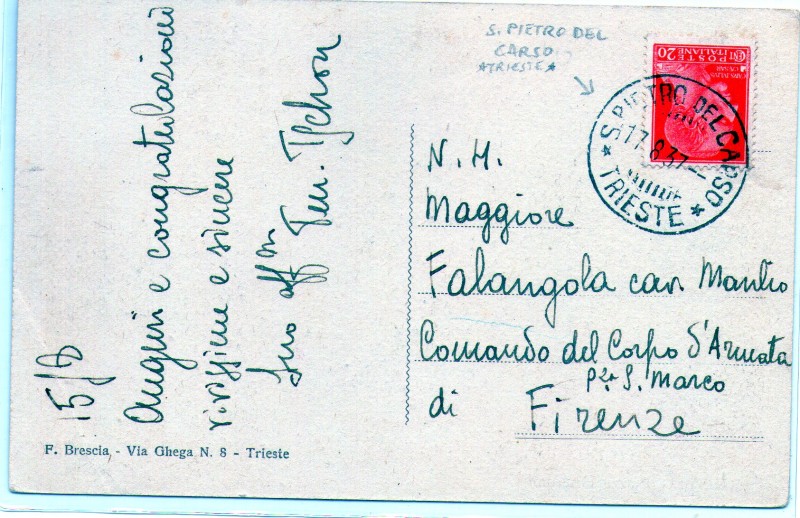 S. PIETRO DEL
CARSO
*TRIESTE*
POSTE ITALIANE
20
S. PIETRO DEL CARSO
17.8.37
* TRIESTE *
15/8
Auguri e congratulazioni
vivissime e sincere
Suo aff.mo Ten.
N. H.
Maggiore
Falangola cav. Manlio
Comando del Corpo d'Armata
Pza S. Marco
di Firenze
F. Brescia - Via Ghega N. 8 - Trieste